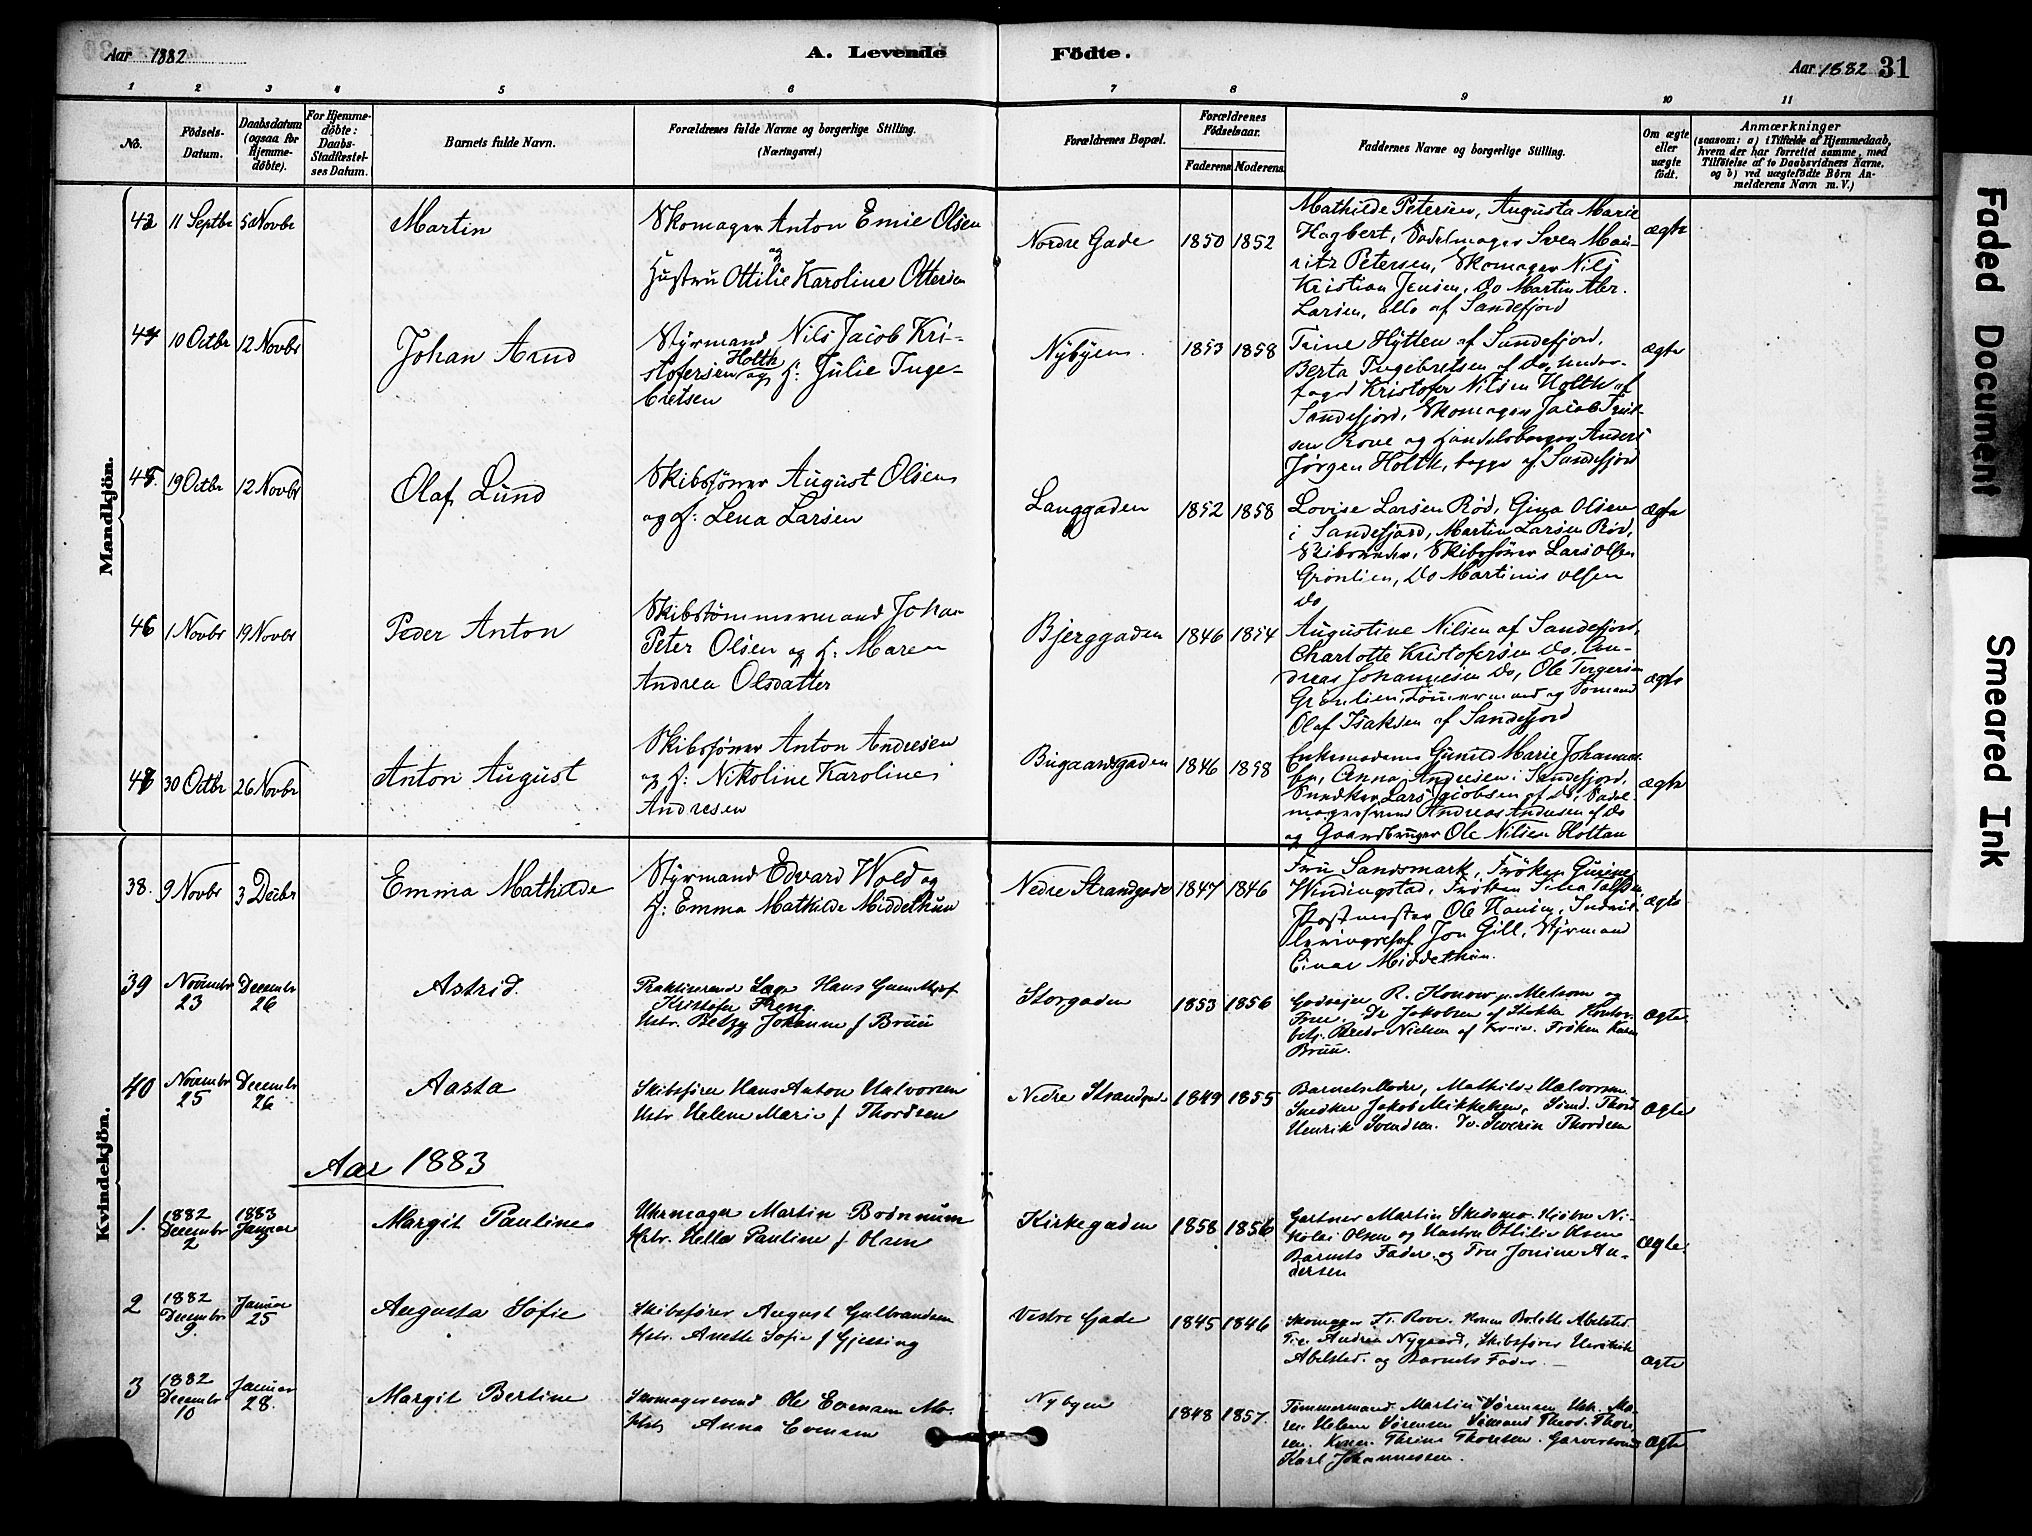 Aar 1882
A. Levende Födte.
Aar 1882 31
1 2 3 4 5 6 7 8 9 10 11
No.
Födsels-Datum.
Daabsdatum (ogsaa for Hjemmedöbte).
For Hjemmedöbte: Daabs-Stadfæstelses Datum.
Barnets fulde Navn.
Forældrenes fulde Navne og borgerlige Stilling.
(Næringsvei.)
Forældrenes Bopæl.
Forældrenes Födselsaar.
Faderens Moderens
Faddernes Navne og borgerlige Stilling.
Om ægte eller uægte födt.
Anmærkninger
(saasom: a) i Tilfælde af Hjemmedaab,
hvem der har forrettet samme, med
Tilföielse af to Daabsvidners Navne,
og b) ved uægtefödte Börn Anmelderens Navn m. V.)
Mandkjön.
11 Septbr 5 Novbr
Martin
Skomager Anton Emil Olsen
og
Hustru Ottilie Karoline Ottersen
Nordre Gade
1850 1852
Mathilde Petersen, Augusta Marie
Hagbert, Sadelmager Sven Mau-
ritz Petersen, Skomager Nils
Kristian Jensen, Do Martin Abr.
Larsen, alle af Sandefjord
ægte
44 10 Octbr 12 Novbr
Johan Arnd
Styrmand Nils Jacob Kri-
stofersen Holth og H: Julie Inge-
bretsen
Nybyen
1853 1858
Trine Hytten af Sandefjord,
Berta Ingebretsen af Do, Under-
foged Kristofer Nilsen Holth af
Sandefjord, Skomager Jacob
Rove og Handelsborger Anders
Jørgen Holth, begge af Sandefjord
ægte
45. 19 Octbr 12 Novbr
Olaf Lund
Skibsfører August Olsen
og H: Lena Larsen
Langgaden
1852 1858
Lovise Larsen Rød, Gina Olsen
i Sandefjord, Martin Larsen Rød,
Skibsreder, Skibsfører Lars Olsen
Grønlien, Do Martinius Olsen
Do
ægte
46 1 Novbr 19 Novbr
Peder Anton
Skibstømmermand Johan
Peter Olsen og H: Maren
Andrea Olsdatter
Bjerggaden
1846 1854
Augustine Nilsen af Sandefjord,
Charlotte Kristofersen Do, An-
dreas Johannesen Do, Ole Torgersen
Grønlien, Tømmermand og Sømand
Olaf Isaksen af Sandefjord
ægte
30 Octbr 26 Novbr
Anton August
Skibsfører Anton Andresen
og H: Nikoline Karoline
Andresen
Bugaardsgaden
1846 1858
Enkemadame Gunild Marie Johannes-
sen, Anna Andresen i Sandefjord,
Snedker Lars Jacobsen af Do, Sadel-
magersvend Andreas Andersen af Do
og Gaardbruger Ole Nilsen Holtan
ægte
Kvindekjön.
38. 9 Novbr 3 Decbr
Emma Mathilde
Styrmand Edvard Wold og
H: Emma Mathilde Middethun
Nedre Strandgade
1847 1846
Fru Sandsmark, Frøken
Windingstad, Frøken
Postmester Ole Hansen,
Jon Gill, Styrmand
Einar Middethun.
ægte
39 Novembr 23 Decembr 26
Astrid
Praktiserende Læge Hans
Kristofer Freng.
Hstr. Betzy Johanne f Bruu
Storgaden
1853 1856
Godseier R. Konow p. Melsom og
Frue, Dr Jakobsen af Stokke
Nielsen af Kr-ia. Frøken
Bruu.
Ægte
40 Novembr 25 Decembr 26
Aasta
Skibsfører Hans Anton Halvorsen
Hstr. Helene Marie f Thordsen
Nedre Strandgade
1849 1855
Barnets Moder, Mathilde Halvorsen
Snedker Jakob Mikkelsen, Sømd. Thord
Henrik Svendsen. Do. Severin Thordsen
Ægte
Aar 1883
1. 1882 Decembr 2 1883 Januar
Margit Pauline
Uhrmager Martin Bodnnum
Hstr. Hella Pauline f Olsen
Kirkegaden
1858 1856
Gartner Martin Skedsmo. Ni-
kolai Olsen og Hustru Ottilie Olsen
Barnets Fader og Fru Jonine An-
dersen
Ægte
2 1882 Decembr 9. Januar 25
Augusta Sofie
Skibsfører August Gulbrandsen
Hstr. Anette Sofie f Gjessing
Vestre Gade
1845 1846
Skomager Fr. Rove. Konen Bolette Abelsted
Andrea Nygaard, Skibsfører Henrik
Abelsted og Barnets Fader. —
ægte
3 1882 Decembr 10 Januar 28.
Margit Bertine
Skomagersvend Ole Evensen
Hstr. Anna Evensen
Nybyen
1848 1857.
Tømmermand Martin Sørensen Hstr. Ma-
ren Helene Sørensen Sømand Theod. Thor-
sen. Konen Thrine Thorsen. Garversvend
Karl Johannessen.
ægte
Faded Document
Smeared Ink